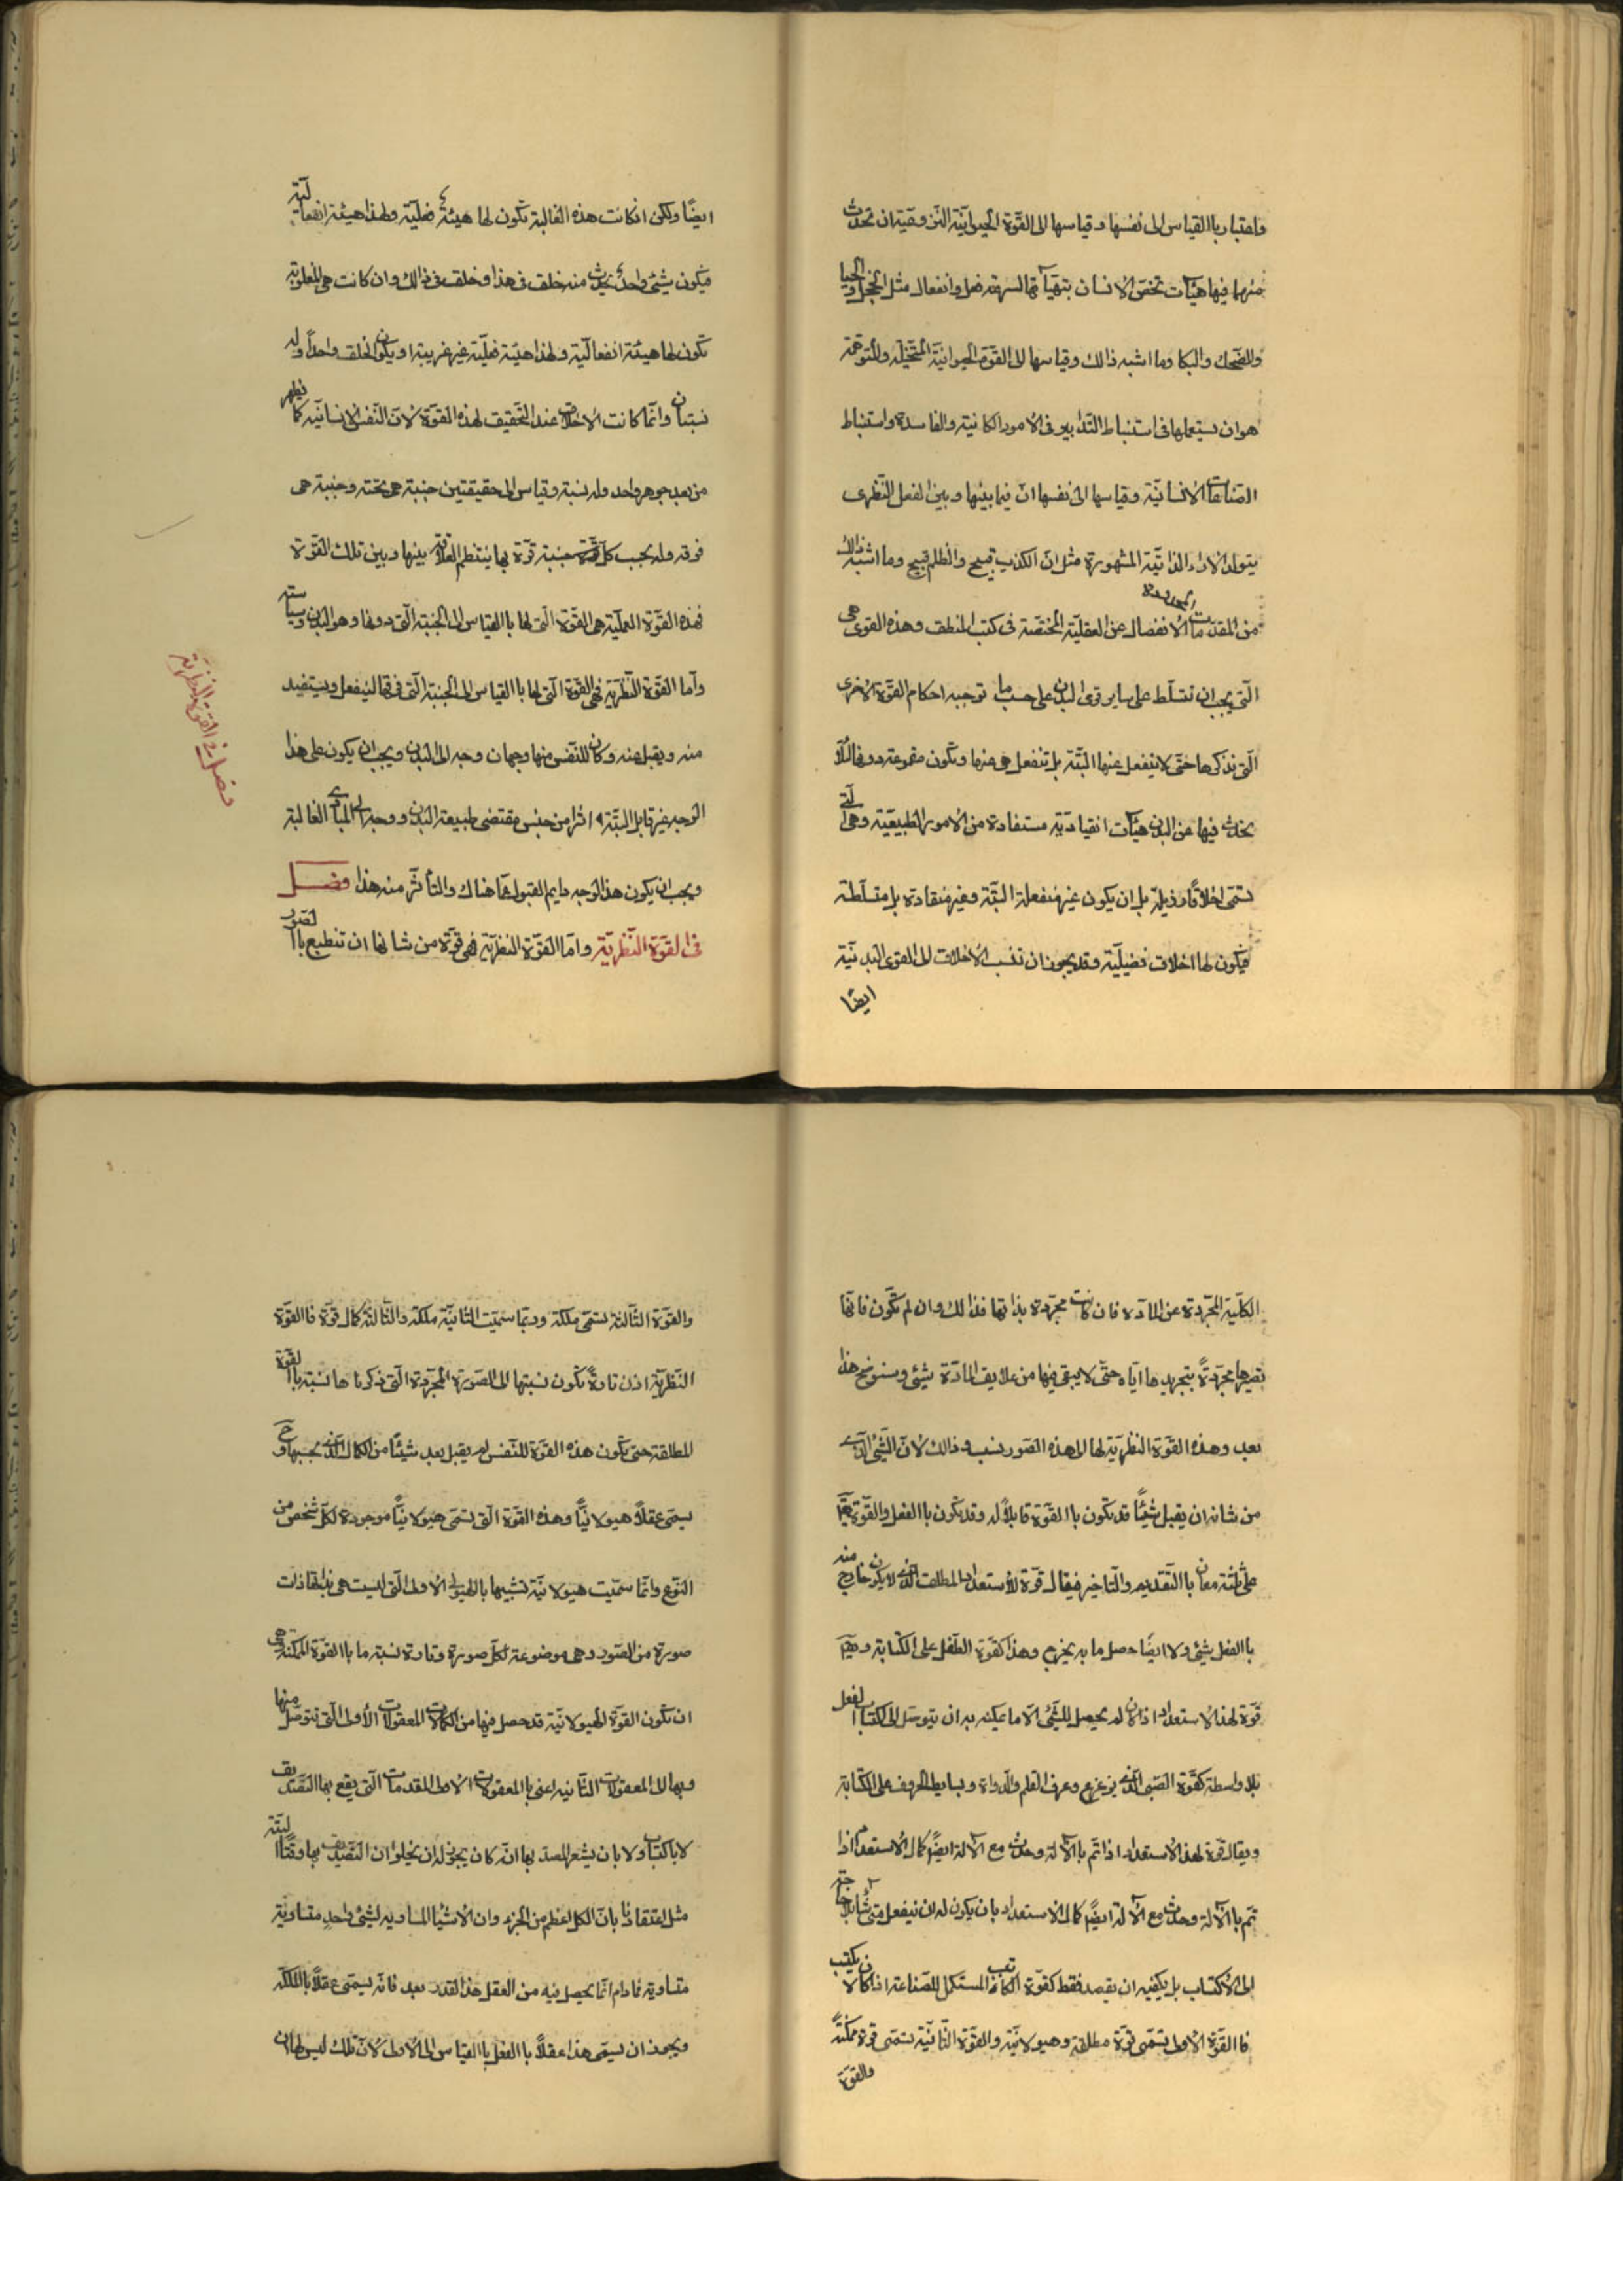 واعتبار باالقياس الى نفسها وقياسها الى القوّة الحيوانيّة النزوعيّة ان تحدث
منهما فيها هيآت تخصّ الانسان بتهيّأ بها لسرعة فعل وانفعال مثل الخجل والحيا
والضّحك والبكا وما اشبه ذالك وقياسها الى القوّة الحيوانيّة المتخيّله والمتوهّمة
هو ان يستعملها فى استنباط التّدابير فى الامور الكاينة والفاسدة واستنباط
الصّناعات الانسانيّة وقياسها الى نفسها انّ فيما بينها وبين العقل النّظرى
يتولد الاراء الذايعة المشهورة مثل انّ الكذب قبيح والظلم قبيح وما اشبه ذالك
من المقدّمات المحدودة الانفصال عن العقليّة المختصّة فى كتب المنطق وهذه القوى هى
الّتى يجب ان تتسلّط على ساير قوى البدن على حسب ما توجبه احكام القوّة الاخرى
الّتى نذكرها حتّى لا ينفعل عنها البتّة بل تنفعل هى عنها وتكون مقموعة دونها لئلّا
يحدث فيها عن البدن هيآت انقياديّة مستفادة من الامور الطبيعيّة وهى الّتى
تسمّى اخلاقًا رذيلة بل ان يكون غير منفعلة البتّة وغير منقادة بل متسلّطة
فيكون لها اخلاق فضيليّة وقد يجوز ان تنسب الاخلاق الى القوى البدنيّة
ايضًا
ايضًا ولكن انكانت هذه الغالبة تكون لها هيئة فعليّة ولهذا هيئة انفعاليّة
فيكون شيئ واحد يحدث منه خلق فى هذا وخلق فى ذالك وان كانت هى المغلوبة
تكون لها هيئة انفعاليّة ولهذا هيئة فعليّة غير غريبة او يكون الخلق واحدًا وله
نسبتان وانّما كانت الاخلاق عند التّحقيق لهذه القوّة لانّ النّفس الانسانيّه كما نظهر
من بعد جوهر واحد وله نسبة وقياس الى حقيقتين جنبة هى تحته وجنبة هى
فوقه وله بحسب كلّ جنبة قوّة بها ينتظم العلاقة بينها وبين تلك القوّة
فهذه القوّة العمليّة هى القوّة الّتى لها باالقياس الى الجنبة الّتى دونها وهو البدن وسياسته
وامّا القوّة النّظريّة فهى القوّة الّتى لها باالقياس الى الجنبة الّتى فوقها لينفعل ويستفيد
منه ويقبل عنه وكان للنّفس منها وجهان وجه الى البدن ويجب ان يكون على هذا
الوجه غير قابل البتّة اثرًا من جنس مقتضى طبيعة البدن ووجه الى المبادى العالية
ويجب ان يكون هذا الوجه دايم القبول عمّا هناك والتأثّر منه هذا فصل
فى القوّة النّظريّة وامّا القوّة النظريّة فهى قوّة من شانها ان تنطبع باالصّور
فصل فى القوة النظريّة
الكليّة المجرّدة عن المادّه فان كانت مجرّدة بذاتها فذالك وان لم تكون فانّها
تصيرها مجرّدةً بتجريدها ايّاه حتّى لا يبقى فيها من علايق المادّة شيئى وسنوضح هذا
بعد وهذه القوّة النّظريّة لها الى هذه الصّور نسب وذالك لانّ الشّئى الّذى
من شانه ان يقبل شيئًا قد تكون باالقوّة قابلًا له وقد تكون باالفعل والقوّة يقال
على ثلثة معان باالتّقديم والتّاخير فيقال قوّة للأستعداد المطلق الذى لا يكون خارج منه
باالفعل شيئى ولا ايضًا حصل ما به يخرج وهذا كقوّة الطّفل على الكتابة ويقال
قوّة لهذا الاستعداد اذا كان لم يحصل للشّئى الّا ما يمكنه به ان يتوصّل الى اكتساب الفعل
بلا واسطة كقوّة الصّبى الّذى يزعرع وعرف القلم والدواة وبسايط الحروف على الكتابة
ويقال قوّة لهذا الاستعداد اذا تمّ باالآلة وحدث مع الآلة ايضًا كمال الاستعداد اذا
تمّ باالآلة وحدث مع الآلة ايضًا كمال الاستعداد بان يكون له ان يفعل متى شاء بلا حاجة
الى الاكتساب بل يكفيه ان يقصد فقط كقوّة الكاتب المستكمل للصّناعة اذا كان لا يكتب
فاالقوّة الاولى تسمّى قوّة مطلقة وهيولانيّة والقوّة الثّانيّة تسمّى قوة ممكنةً
والقوة
والقوّة الثّالثة تسمّى ملكة وربّما سمّيت الثّانيّة ملكة والثّالثة كمال قوّة فاالقوّة
النّظريّة اذن تارةً تكون نسبتها الى الصّورة المجرّدة الّتى ذكرناها نسبة باالقوة
المطلقة حتى تكون هذه القوّة للنّفس لم يقبل بعد شيئًا من الكمال الّذى بحسبها وح
يسمّى عقلًا هيولانيًّا وهذه القوّة الّتى تسمّى هيولانيًّا موجودة لكلّ شخص من
النّوع وانّما سمّيت هيولانيّة تشبيها باالهيولى الاولى الّتى ليست هى بذاتها ذات
صورة من الصّور وهى موضوعة لكلّ صورة وتارة نسبة ما باالقوّة الممكنة وهى
ان تكون القوّة الهيولانيّة قد حصل فيها من الكمالات المعقولات الأولى الّتى يتوصّل منها
وبها الى المعقولات الثّانيه اعنى باالمعقولات الاولى المقدمات الّتى يقع بها التّصديق
لا باكتساب ولا بان يشعر المصدق بها انّه كان يجوز له ان يخلو ان التّصديق بها وقتًا البتّة
مثل اعتقادنا بانّ الكل اعظم من الجزء وان الاشيا المساويه لشيئى واحدٍ متساوية
متساوية فما دام انّما يحصل فيه من العقل هذا القدر بعد فانّه يسمّى عقلًا باالملكة
ويجوز ان يسمّى هذا عقلًا باالفعل باالقياس الى الاولى لانّ تلك ليس لها ان